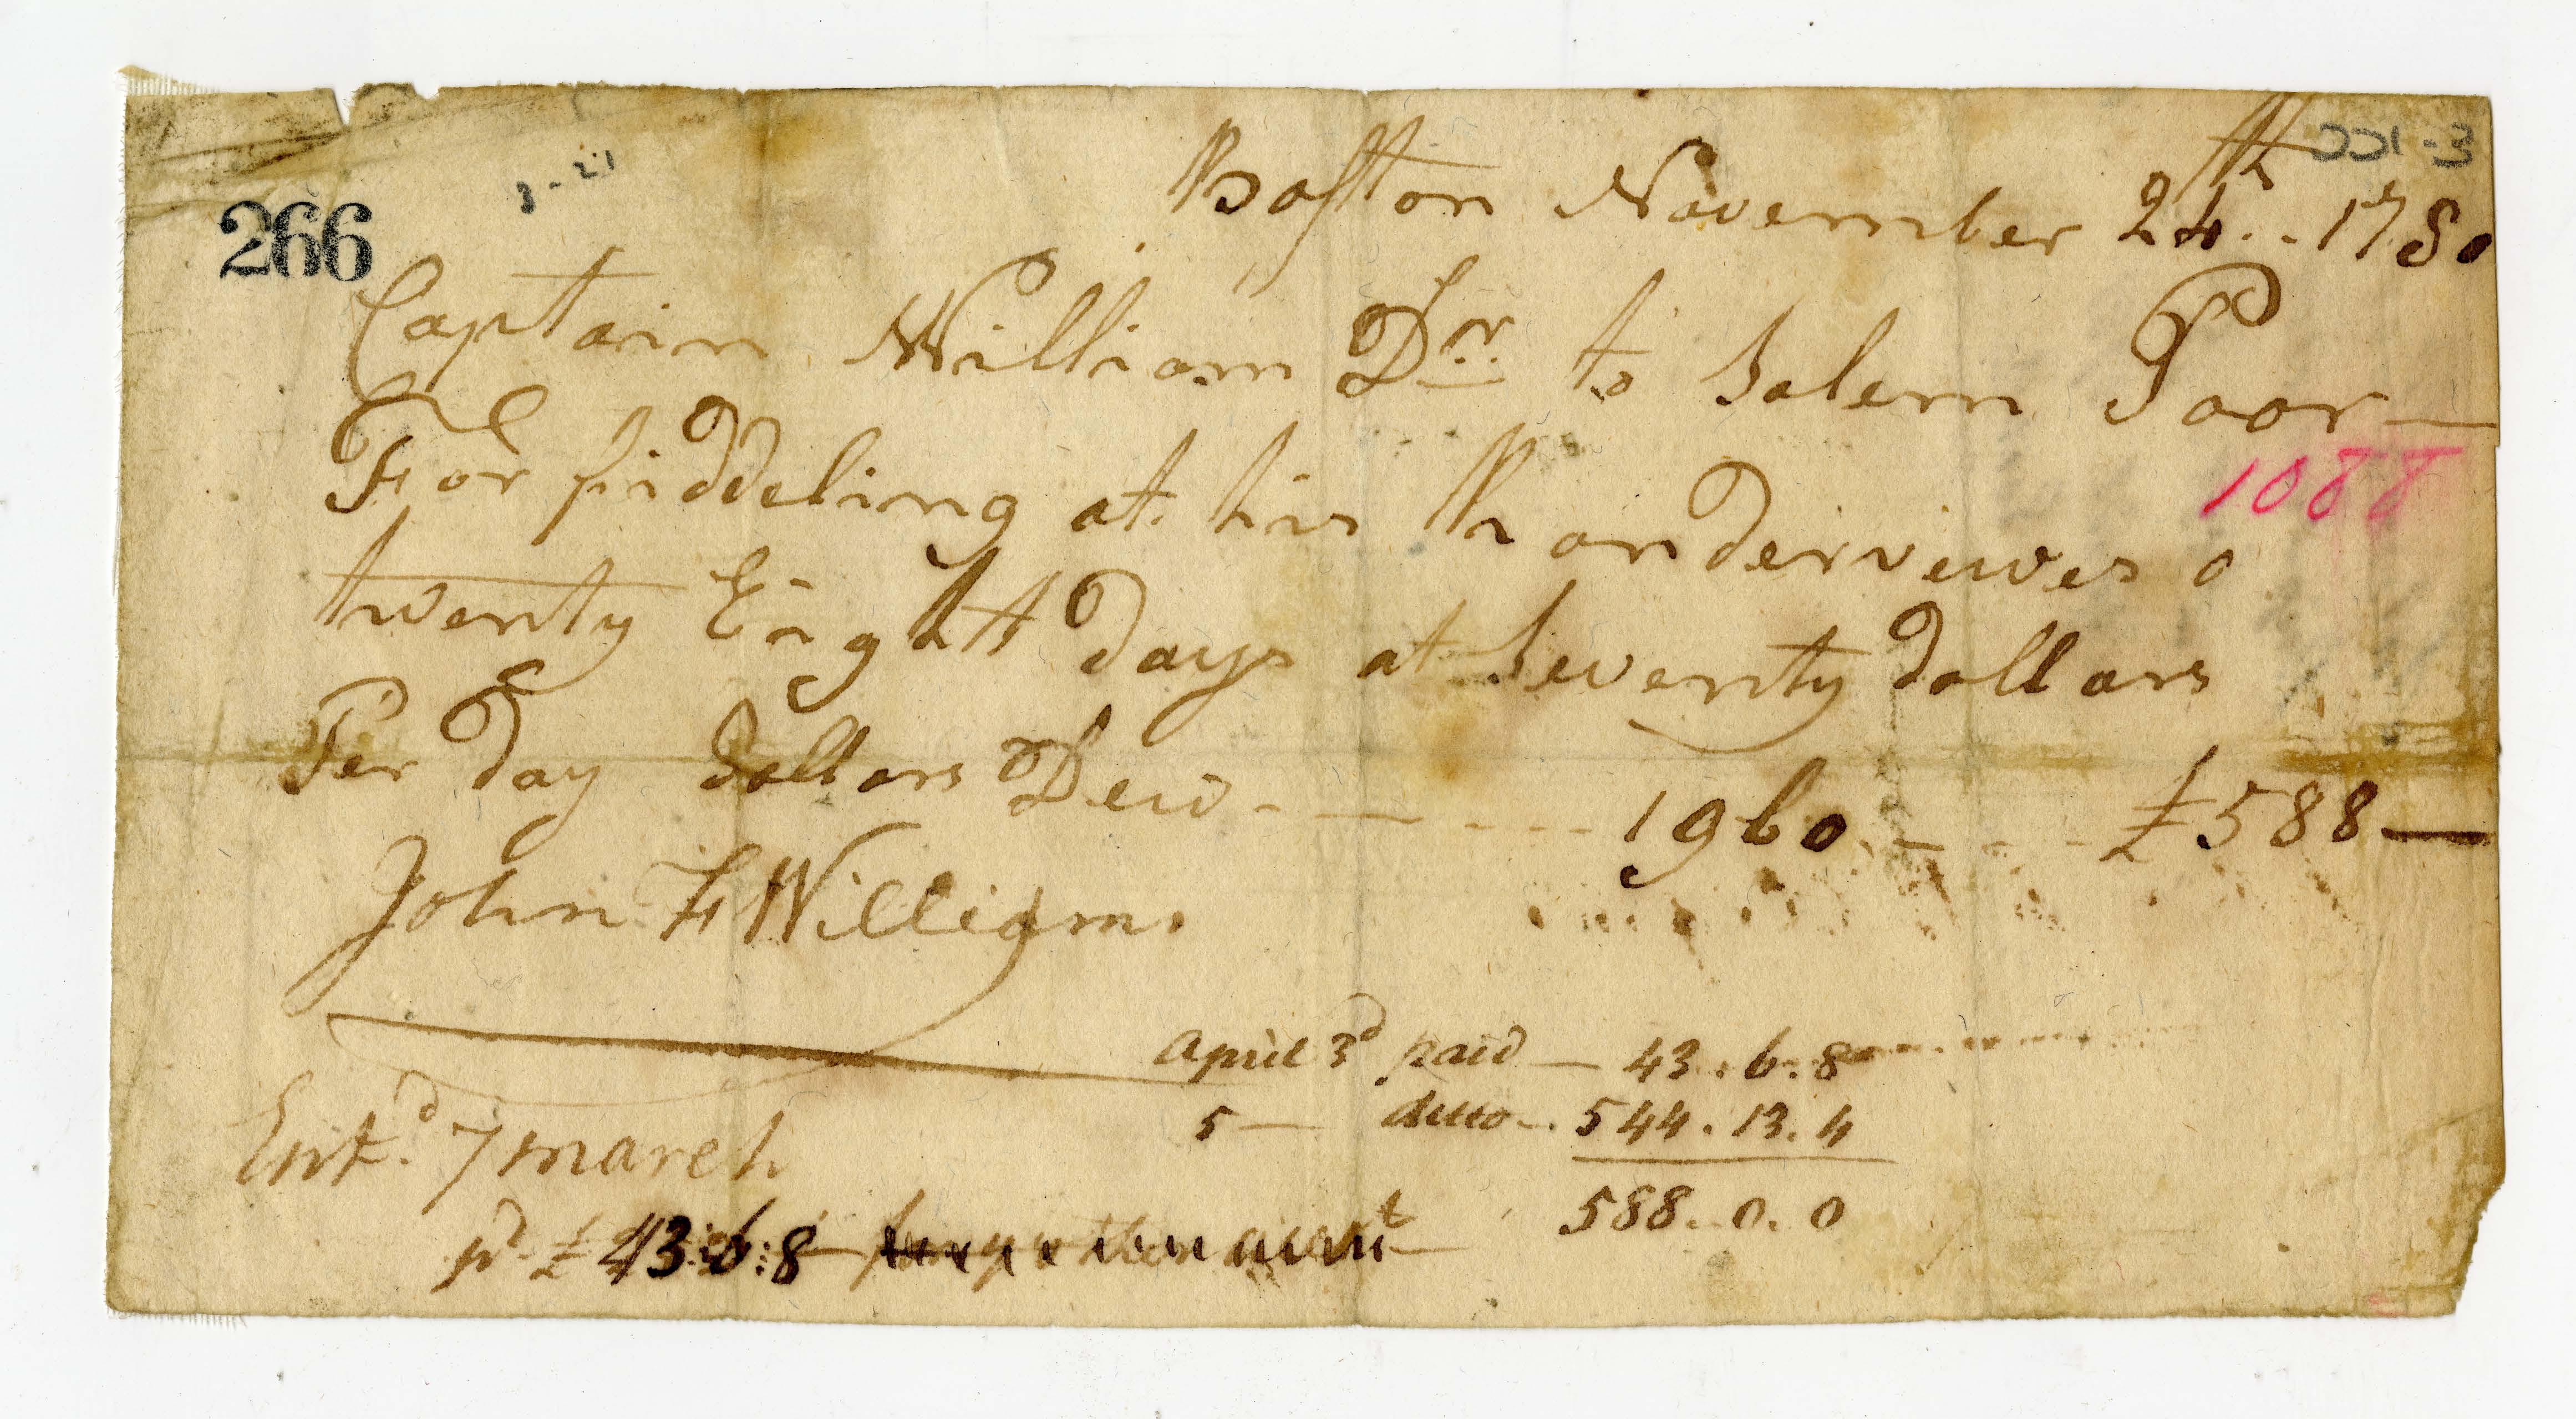 266
3-21
Boston November 24th.. 1780
Captain William Dr. to Salem Poor—
For fiddeling at his Randervewes
1088
twenty Eight days at Seventy dollars
Per day dollars Dew - — - - - 1960 - — - - £588—
John F Williams
April 3d paid — 43 . 6 . 8
5 — ditto - . 544 . 13 . 4
588 . 0 . 0
Entd. 7 march
pd £43:6:8